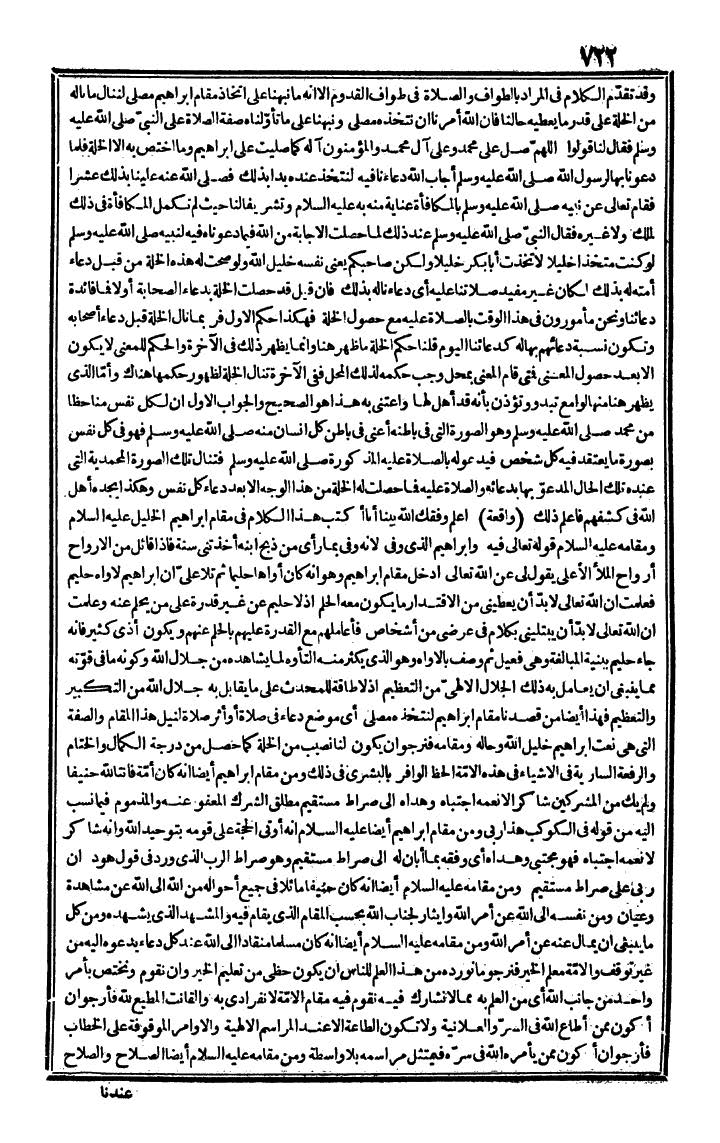 ٧٢٢
وقد تقدّم الكلام فى المراد بالطواف والصلاة فى طواف القدوم الا انه ما نبهنا على اتخاذ مقام ابراهيم مصلى لننال ما ناله
من الخلة على قدر ما يعطيه حالنا فان الله أمرنا ان نتخذه مصلى ونبهنا على ما تأوّلناه صفة الصلاة على النبىّ صلى الله عليه
وسلم فقال لنا قولوا اللهمّ صل على محمد وعلى آل محمد والمؤمنون آله كما صليت على ابراهيم وما اختص به الا الخلة فلما
دعونا بها لرسول الله صلى الله عليه وسلم أجاب الله دعاءنا فيه لنتخذ عنده يدا بذلك فصلى الله عنه علينا بذلك عشرا
فقام تعالى عن نبيه صلى الله عليه وسلم بالمكافأة عناية منه به عليه السلام وتشريفا لنا حيث لم تكمل المكافأة فى ذلك
لملك ولا غيره فقال النبىّ صلى الله عليه وسلم عند ذلك لما حصلت الاجابة من الله فيما دعوناه فيه لنبيه صلى الله عليه وسلم
لو كنت متخذا خليلا لاتخذت أبا بكر خليلا ولكن صاحبكم يعنى نفسه خليل الله ولو صحت له هذه الخلة من قبل دعاء
أمته له بذلك لكان غير مفيد صلاتنا عليه أى دعاءنا له بذلك فان قيل قد حصلت الخلة بدعاء الصحابة أولا فما فائدة
دعائنا ونحن مأمورون فى هذا الوقت بالصلاة عليه مع حصول الخلة فهكذا حكم الاول فربما نال الخلة قبل دعاء أصحابه
وتكون نسبة دعائهم بها له كدعائنا اليوم قلنا حكم الخلة ما ظهر هنا وانما يظهر ذلك فى الآخرة والحكم للمعنى لا يكون
الا بعد حصول المعنى فتى قام المعنى بمحل وجب حكمه لذلك المحل ففى الآخرة تنال الخلة لظهور حكمها هناك وأمّا الذى
يظهر هنا منها لوامع تبدو وتؤذن بأنه قد أهل لها واعتنى به هذا هو الصحيح والجواب الاول ان لكل نفس منا حظا
من محمد صلى الله عليه وسلم وهو الصورة التى فى باطنه أعنى فى باطن كل انسان منه صلى الله عليه وسلم فهو فى كل نفس
بصورة ما يعتقد فيه كل شخص فيدعو له بالصلاة عليه المذكورة صلى الله عليه وسلم فتنال تلك الصورة المحمدية التى
عنده تلك الحال المدعوّ بها بدعائه والصلاة عليه فما حصلت له الخلة من هذا الوجه الا بعد دعاء كل نفس وهكذا يجده أهل
الله فى كشفهم فاعلم ذلك (واقعة) اعلم وفقك الله بينا أنا أكتب هذا الكلام فى مقام ابراهيم الخليل عليه السلام
ومقامه عليه السلام قوله تعالى فيه وابراهيم الذى وفى لانه وفى بما رأى من ذبح ابنه أخذتنى سنة فاذا قائل من الارواح
أرواح الملأ الأعلى يقول لى عن الله تعالى ادخل مقام ابراهيم وهو انه كان أوّاها حليما ثم تلا علىّ ان ابراهيم لاواه حليم
فعلمت ان الله تعالى لا بدّ أن يعطينى من الاقتدار ما يكون معه الحلم اذ لا حليم عن غير قدرة على من يحلم عنه وعلمت
ان الله تعالى لا بدّ أن يبتلينى بكلام فى عرضى من أشخاص فأعاملهم مع القدرة عليهم بالحلم عنهم ويكون أذى كثير فانه
جاء حليم ببنية المبالغة وهى فعيل ثم وصف بالاوّاه وهو الذى يكثر منه التأوه لما يشاهده من جلال الله وكونه ما فى قوّته
مما ينبغى ان يعامل به ذلك الجلال الالهىّ من التعظيم اذ لا طاقة للمحدث على ما يقابل به جلال الله من التكبير
والتعظيم فهذا أيضا من قصدنا مقام ابراهيم لنتخذه مصلى أى موضع دعاء فى صلاة أو أثر صلاة لنيل هذا المقام والصفة
التى هى نعت ابراهيم خليل الله وحاله ومقامه فنرجو ان يكون لنا نصيب من الخلة كما حصل من درجة الكمال والختام
والرفعة السارية فى الاشياء فى هذه الامّة الحظ الوافر بالبشرى فى ذلك ومن مقام ابراهيم أيضا انه كان أمّة قانتا لله حنيفا
ولم يك من المشركين شاكرا لانعمه اجتباه وهداه الى صراط مستقيم مطلق الشرك المعفو عنه والمذموم فيما نسب
اليه من قوله فى الكوكب هذا ربى ومن مقام ابراهيم أيضا عليه السلام انه أوتى الحجة على قومه بتوحيد الله وانه شاكر
لانعمه اجتباه فهو مجتبى وهداه أى وفقه بما أبان له الى صراط مستقيم وهو صراط الرب الذى ورد فى قول هود ان
ربى على صراط مستقيم ومن مقامه عليه السلام أيضا انه كان حنيفا مائلا فى جميع أحواله من الله الى الله عن مشاهدة
وعيان ومن نفسه الى الله عن أمر الله وايثار لجناب الله بحسب المقام الذى يقام فيه والمشهد الذى يشهده ومن كل
ما ينبغى ان يمال عنه عن أمر الله ومن مقامه عليه السلام أيضا انه كان مسلما منقادا الى الله عند كل دعاء يدعوه اليه من
غير توقف والامّة معلم الخير فنرجو ما نورده من هذا العلم للناس ان يكون حظى من تعليم الخير وان نقوم ونختص بأمر
واحد من جانب الله أى من العلم به مما لا نشارك فيه نقوم فيه مقام الامّة لانفرادى به والقانت المطيع لله فأرجو ان
أكون ممن أطاع الله فى السرّ والعلانية ولا تكون الطاعة الا عند المراسم الالهية والاوامر الموقوفة على الخطاب
فأرجو ان أكون ممن يأمره الله فى سرّه فيمتثل مراسمه بلا واسطة ومن مقامه عليه السلام أيضا الصلاح والصلاح
عندنا